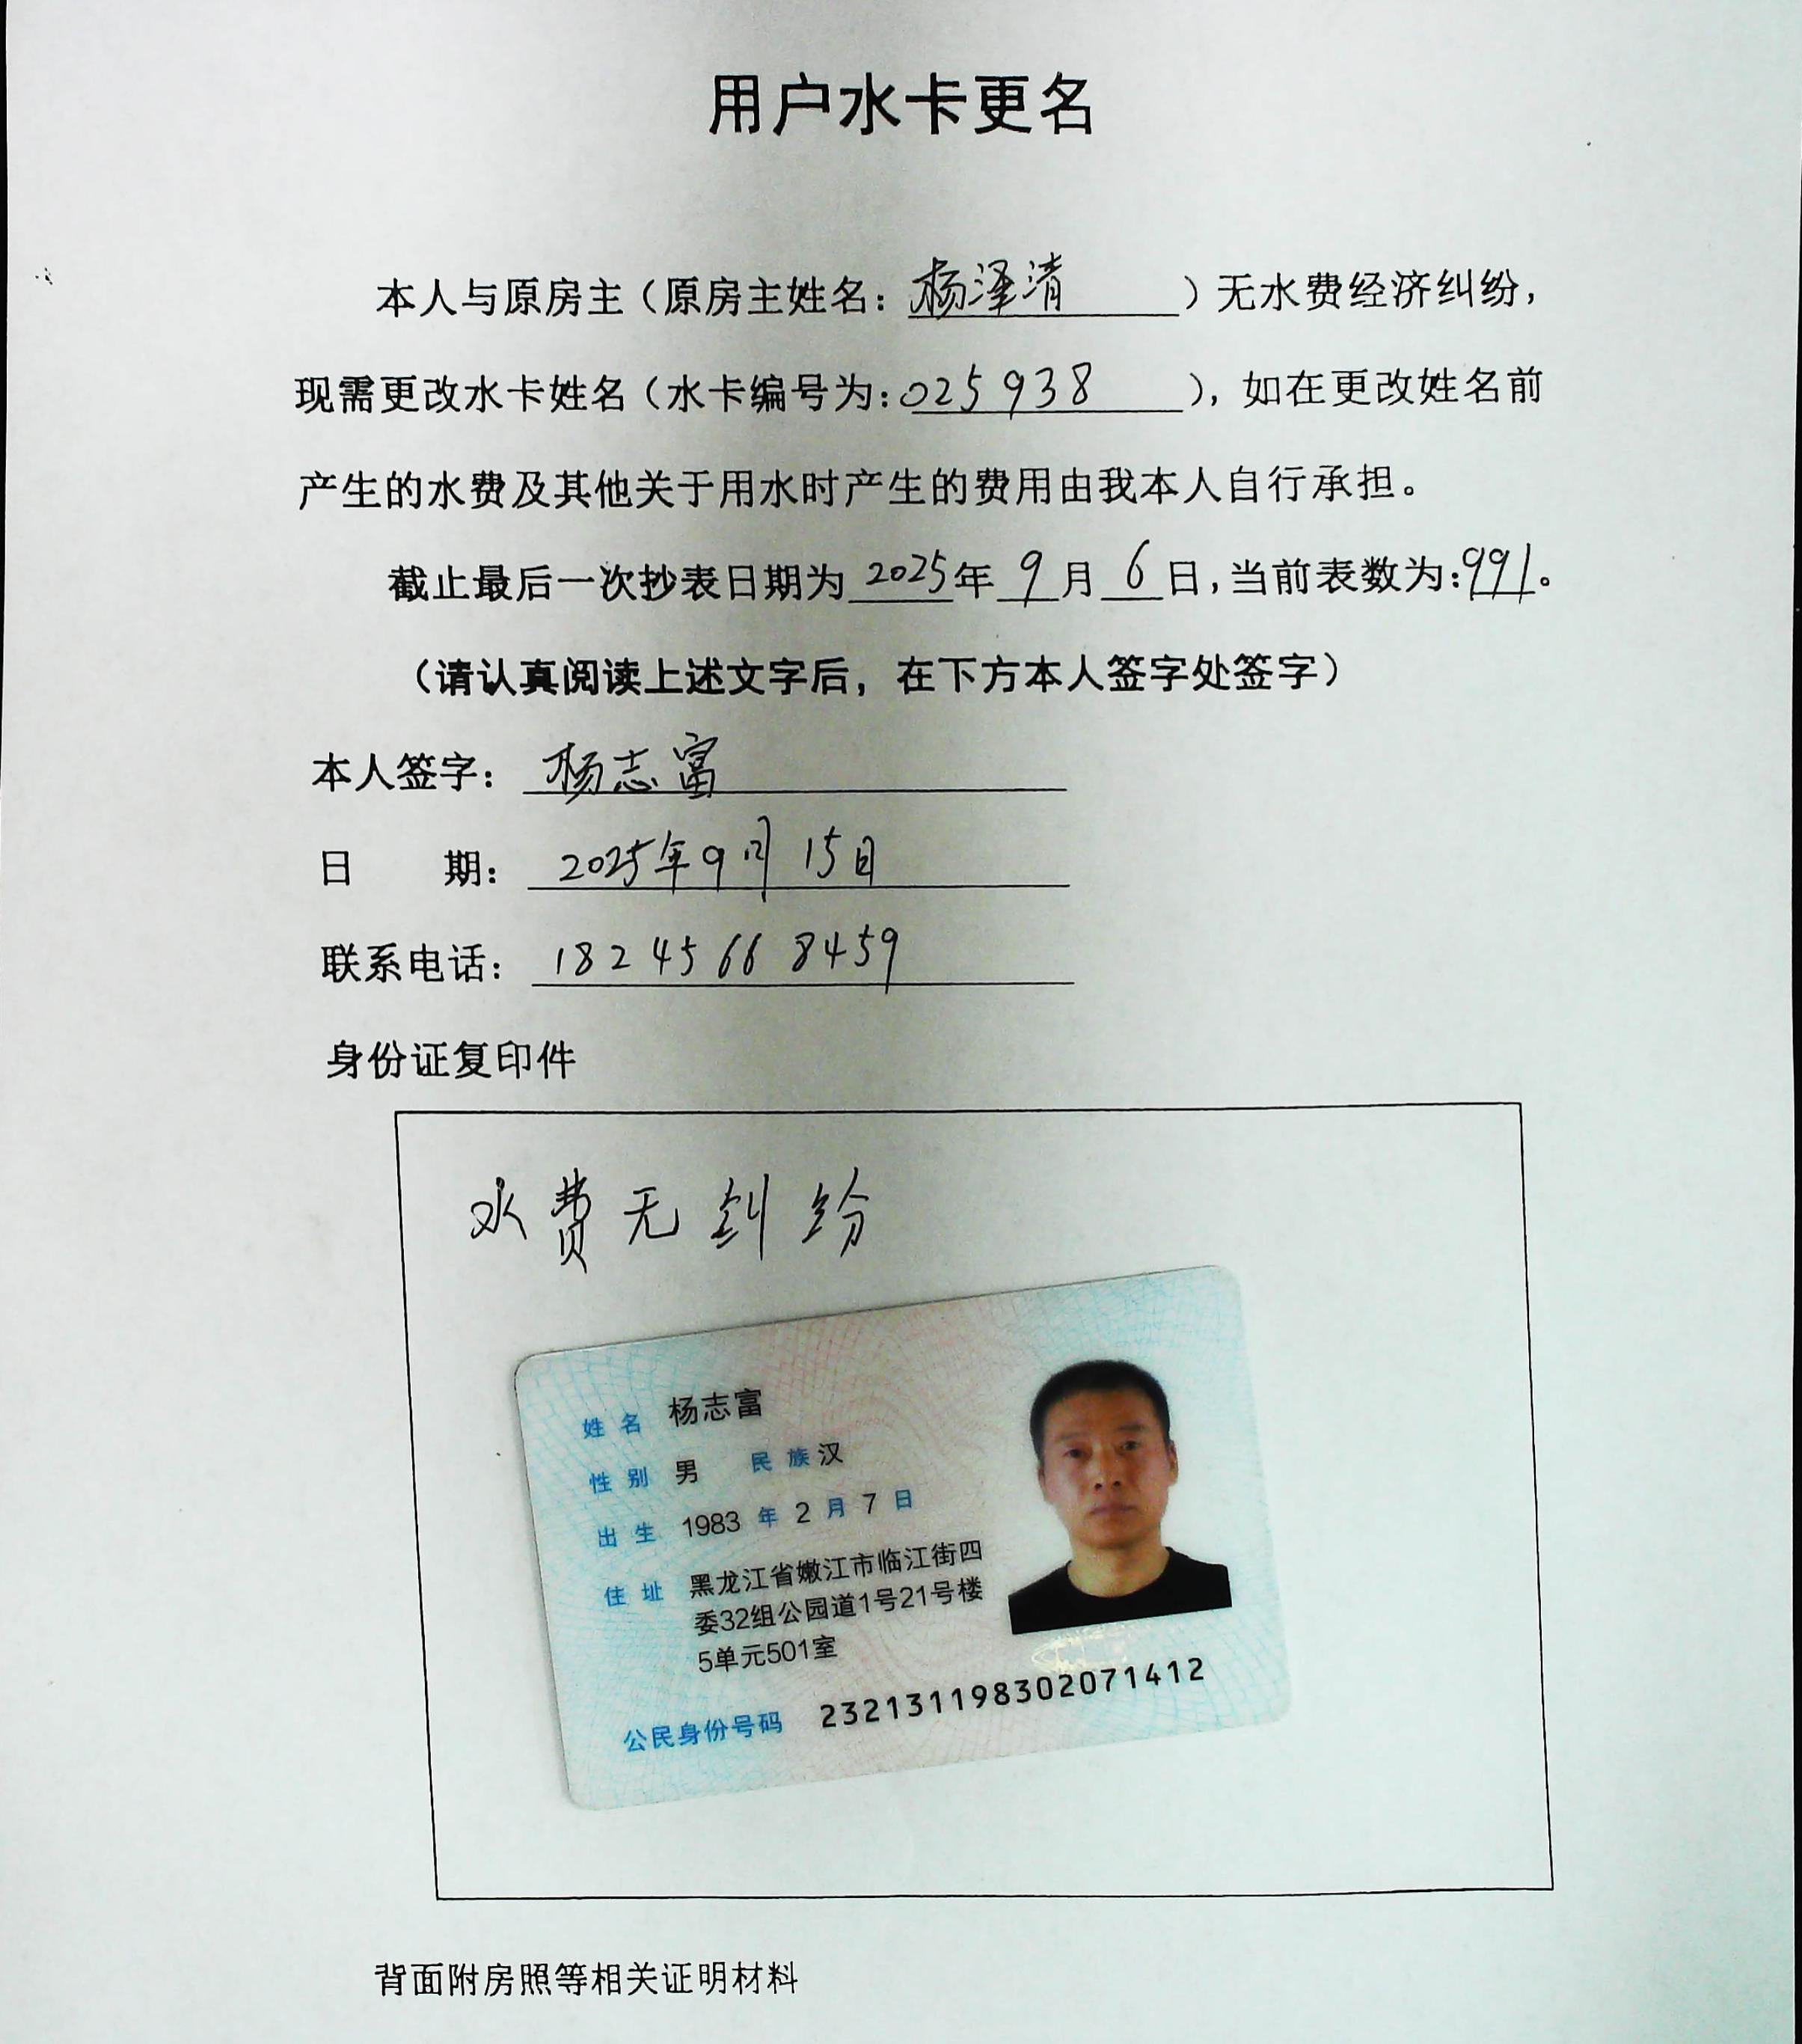 用户水卡更名
本人与原房主（原房主姓名：杨泽清）无水费经济纠纷，
现需更改水卡姓名（水卡编号为：025938），如在更改姓名前
产生的水费及其他关于用水时产生的费用由我本人自行承担。
截止最后一次抄表日期为2025年9月6日，当前表数为：991。
（请认真阅读上述文字后，在下方本人签字处签字）
本人签字：杨志富
日期：2025年9月15日
联系电话：18245668459
身份证复印件
水费无纠纷
姓名 杨志富
性别 男 民族 汉
出生 1983年2月7日
住址 黑龙江省嫩江市临江街四
委32组公园道1号21号楼
5单元501室
公民身份号码 232131198302071412
背面附房照等相关证明材料